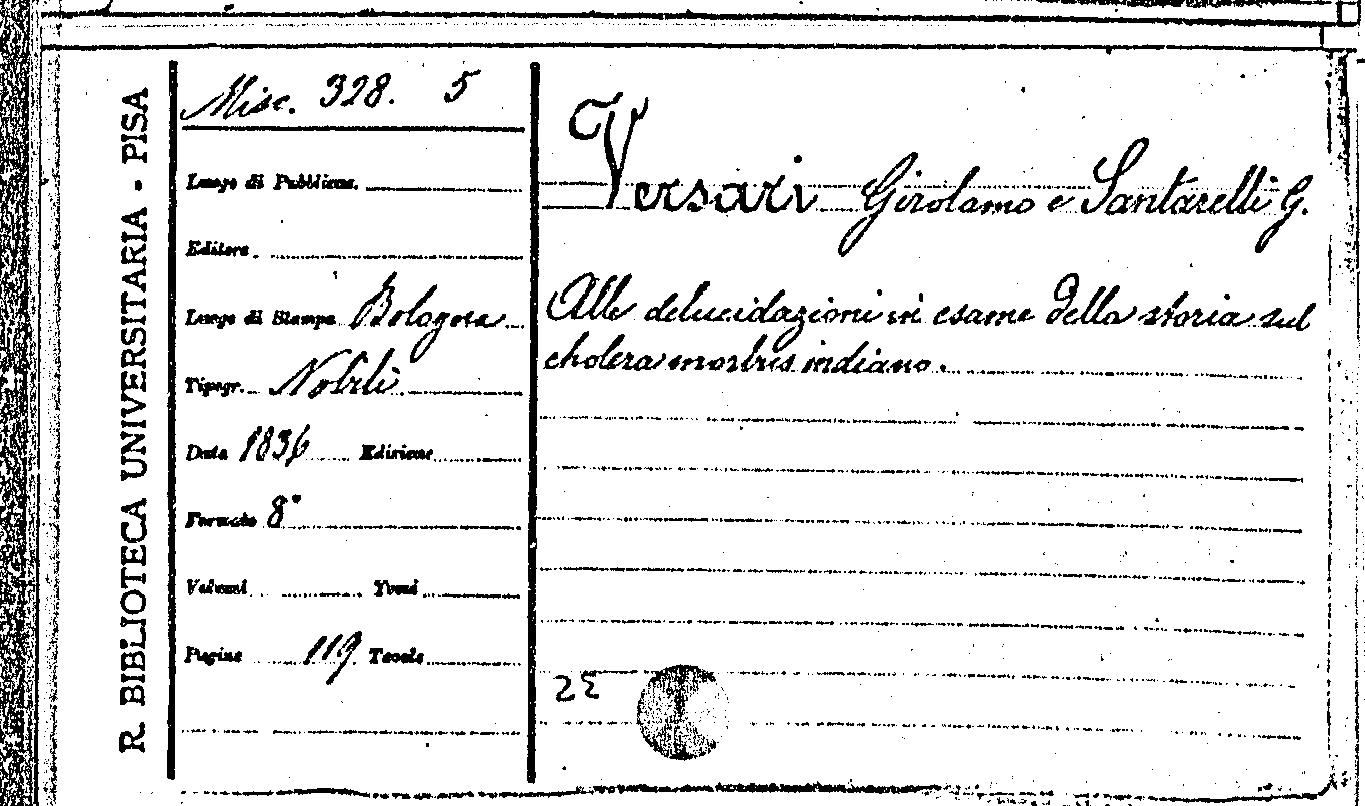 R. BIBLIOTECA UNIVERSITARIA - PISA
Misc. 328. 5
Luogo di Pubblicaz.
Editore
Luogo di Stampa Bologna
Tipogr. Nobili
Data 1836 Edizione
Formato 8°
Volumi Tomi
Pagine 119 Tavole
Versari Girolamo e Santarelli G.
Alle delucidazioni in esame della storia sul
cholera morbus indiano.